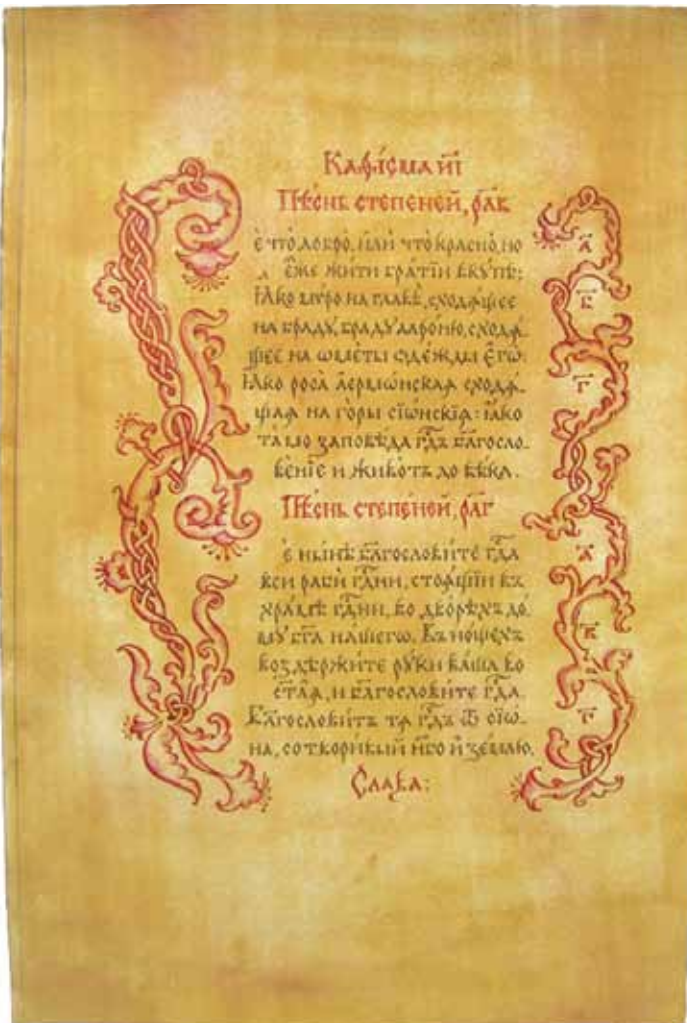 Каѳі́сма и҃і
Пѣ́снь степе́ней, рл҃в
є что̀ добро̀, и҆лѝ что̀ красно̀, но
є҆́же жи́ти бра́тїи вкꙋ́пѣ;
Ꙗ҆́кѡ мѵ́ро на главѣ̀, сходѧ́щее
на брадꙋ̀, брадꙋ̀ аарѡ́ню, сходѧ́
щее на ѡ҆ме́ты ѻ҆де́жды є҆гѡ̀:
Ꙗ҆́кѡ роса̀ а҆ермѡ́нскаѧ сходѧ́
щаѧ на го́ры сїѡ́нскїѧ: ꙗ҆́кѡ
та́мѡ заповѣ́да гд҇ь блг҇осло
ве́нїе и живо́тъ до вѣ́ка.
Пѣ́снь степе́ней, рл҃г
є ны́нѣ блг҇ослови́те гд҇а
всѝ рабѝ гд҇ни, стоѧ́щїи въ
хра́мѣ гд҇ни, во дво́рѣхъ до́
мꙋ бг҃а на́шегѡ. Въ но́щехъ
воздѣжи́те рꙋ́ки ва́шѧ во
ст҃а̑ѧ, и блг҇ослови́те гд҇а.
Блг҇ослови́тъ тѧ̀ гд҇ь ѿ сїѡ́
на, сотвори́вый не́бо и҆ зе́млю.
Сла́ва:
а҃
в҃
г҃
а҃
в҃
г҃